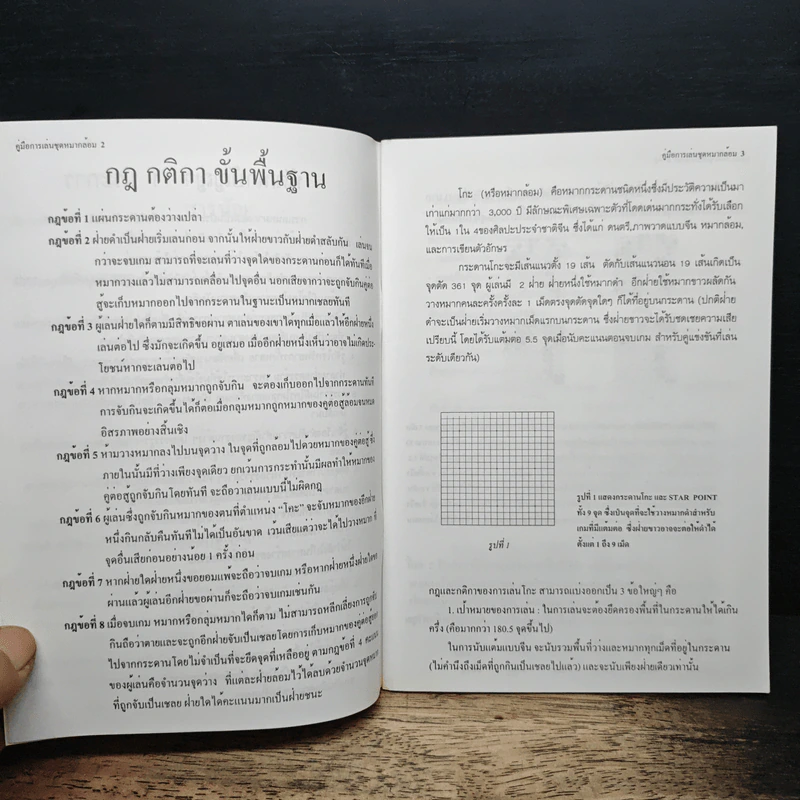 คู่มือการเล่นชุดหมากล้อม 2
กฎ กติกา ขั้นพื้นฐาน
กฎข้อที่ 1 แผ่นกระดานต้องวางเปล่า
กฎข้อที่ 2 ฝ่ายดำเป็นฝ่ายเริ่มเล่นก่อน จากนั้นให้ฝ่ายขาวกับฝ่ายดำสลับกัน เล่นจน
กว่าจะจบเกม สามารถที่จะเล่นที่ว่างจุดใดของกระดานก่อนก็ได้ทันทีเมื่อ
หมากวางแล้วไม่สามารถเคลื่อนไปจุดอื่น นอกเสียจากว่าจะถูกจับกินคู่ต่อ
สู้จะเก็บหมากออกไปจากกระดานในฐานะเป็นหมากเชลยทันที
กฎข้อที่ 3 ผู้เล่นฝ่ายใดก็ตามมีสิทธิขอผ่าน ตาเล่นของเขาได้ทุกเมื่อแล้วให้อีกฝ่ายหนึ่ง
เล่นต่อไป ซึ่งมักจะเกิดขึ้น อยู่เสมอ เมื่ออีกฝ่ายหนึ่งเห็นว่าอาจไม่เกิดประ
โยชน์หากจะเล่นต่อไป
กฎข้อที่ 4 หากหมากหรือกลุ่มหมากถูกจับกิน จะต้องเก็บออกไปจากกระดานทันที
การจับกินจะเกิดขึ้นได้ก็ต่อเมื่อกลุ่มหมากถูกหมากของคู่ต่อสู้ล้อมจนหมด
อิสรภาพอย่างสิ้นเชิง
กฎข้อที่ 5 ห้ามวางหมากลงไปบนจุดว่าง ในจุดที่ถูกล้อมไปด้วยหมากของคู่ต่อสู้ ซึ่ง
ภายในนั้นมีที่ว่างเพียงจุดเดียว ยกเว้นการกระทำนั้นมีผลทำให้หมากของ
คู่ต่อสู้ถูกจับกินโดยทันที จะถือว่าเล่นแบบนี้ไม่ผิดกฎ
กฎข้อที่ 6 ผู้เล่นซึ่งถูกจับกินหมากของตนที่ตำแหน่ง "โคะ" จะจับหมากของอีกฝ่าย
หนึ่งกินกลับคืนทันทีไม่ได้เป็นอันขาด เว้นเสียแต่ว่าจะได้ไปวางหมาก ที่
จุดอื่นเสียก่อนอย่างน้อย 1 ครั้ง ก่อน
กฎข้อที่ 7 หากฝ่ายใดฝ่ายหนึ่งขอยอมแพ้จะถือว่าจบเกม หรือหากฝ่ายหนึ่งฝ่ายใดขอ
ผ่านแล้วผู้เล่นอีกฝ่ายขอผ่านก็จะถือว่าจบเกมเช่นกัน
กฎข้อที่ 8 เมื่อจบเกม หมากหรือกลุ่มหมากใดก็ตาม ไม่สามารถหลีกเลี่ยงการถูกจับ
กินถือว่าตายและจะถูกอีกฝ่ายจับเป็นเชลยโดยการเก็บหมากของคู่ต่อสู้ออก
ไปจากกระดานโดยไม่จำเป็นที่จะยึดจุดที่เหลืออยู่ ตามกฎข้อที่ 4 คะแนน
ของผู้เล่นคือจำนวนจุดว่าง ที่แต่ละฝ่ายล้อมไว้ได้ลบด้วยจำนวนจุดหมาก
ที่ถูกจับเป็นเชลย ฝ่ายใดได้คะแนนมากเป็นฝ่ายชนะ
คู่มือการเล่นชุดหมากล้อม 3
โกะ (หรือหมากล้อม) คือหมากกระดานชนิดหนึ่งซึ่งมีประวัติความเป็นมา
เก่าแก่มากกว่า 3,000 ปี มีลักษณะพิเศษเฉพาะตัวที่โดดเด่นมากกระทั่งได้รับเลือก
ให้เป็น 1ใน 4ของศิลปะประจำชาติจีน ซึ่งได้แก่ ดนตรี,ภาพวาดแบบจีน หมากล้อม,
และการเขียนตัวอักษร
กระดานโกะจะมีเส้นแนวตั้ง 19 เส้น ตัดกับเส้นแนวนอน 19 เส้นเกิดเป็น
จุดตัด 361 จุด ผู้เล่นมี 2 ฝ่าย ฝ่ายหนึ่งใช้หมากดำ อีกฝ่ายใช้หมากขาวผลัดกัน
วางหมากคนละครั้งครั้งละ 1 เม็ดตรงจุดตัดจุดใดๆ ก็ได้ที่อยู่บนกระดาน (ปกติฝ่าย
ดำจะเป็นฝ่ายเริ่มวางหมากเม็ดแรกบนกระดาน ซึ่งฝ่ายขาวจะได้รับชดเชยความเสีย
เปรียบนี้ โดยได้รับแต้มต่อ 5.5 จุดเมื่อนับคะแนนตอนจบเกม สำหรับคู่แข่งขันที่เล่น
ระดับเดียวกัน)
รูปที่ 1 แสดงกระดานโกะ และ STAR POINT
ทั้ง 9 จุด ซึ่งเป็นจุดที่จะใช้วางหมากดำสำหรับ
เกมที่มีแต้มต่อ ซึ่งฝ่ายขาวอาจจะต่อให้ดำได้
ตั้งแต่ 1 ถึง 9 เม็ด
รูปที่ 1
กฎและกติกาของการเล่นโกะ สามารถแบ่งออกเป็น 3 ข้อใหญ่ๆ คือ
1. เป้าหมายของการเล่น : ในการเล่นจะต้องยึดครองพื้นที่ในกระดานให้ได้เกิน
ครึ่ง (คือมากกว่า 180.5 จุดขึ้นไป)
ในการนับแต้มแบบจีน จะนับรวมพื้นที่ว่างและหมากทุกเม็ดที่อยู่ในกระดาน
(ไม่คำนึงถึงเม็ดที่ถูกกินเป็นเชลยไปแล้ว) และจะนับเพียงฝ่ายเดียวเท่านั้น